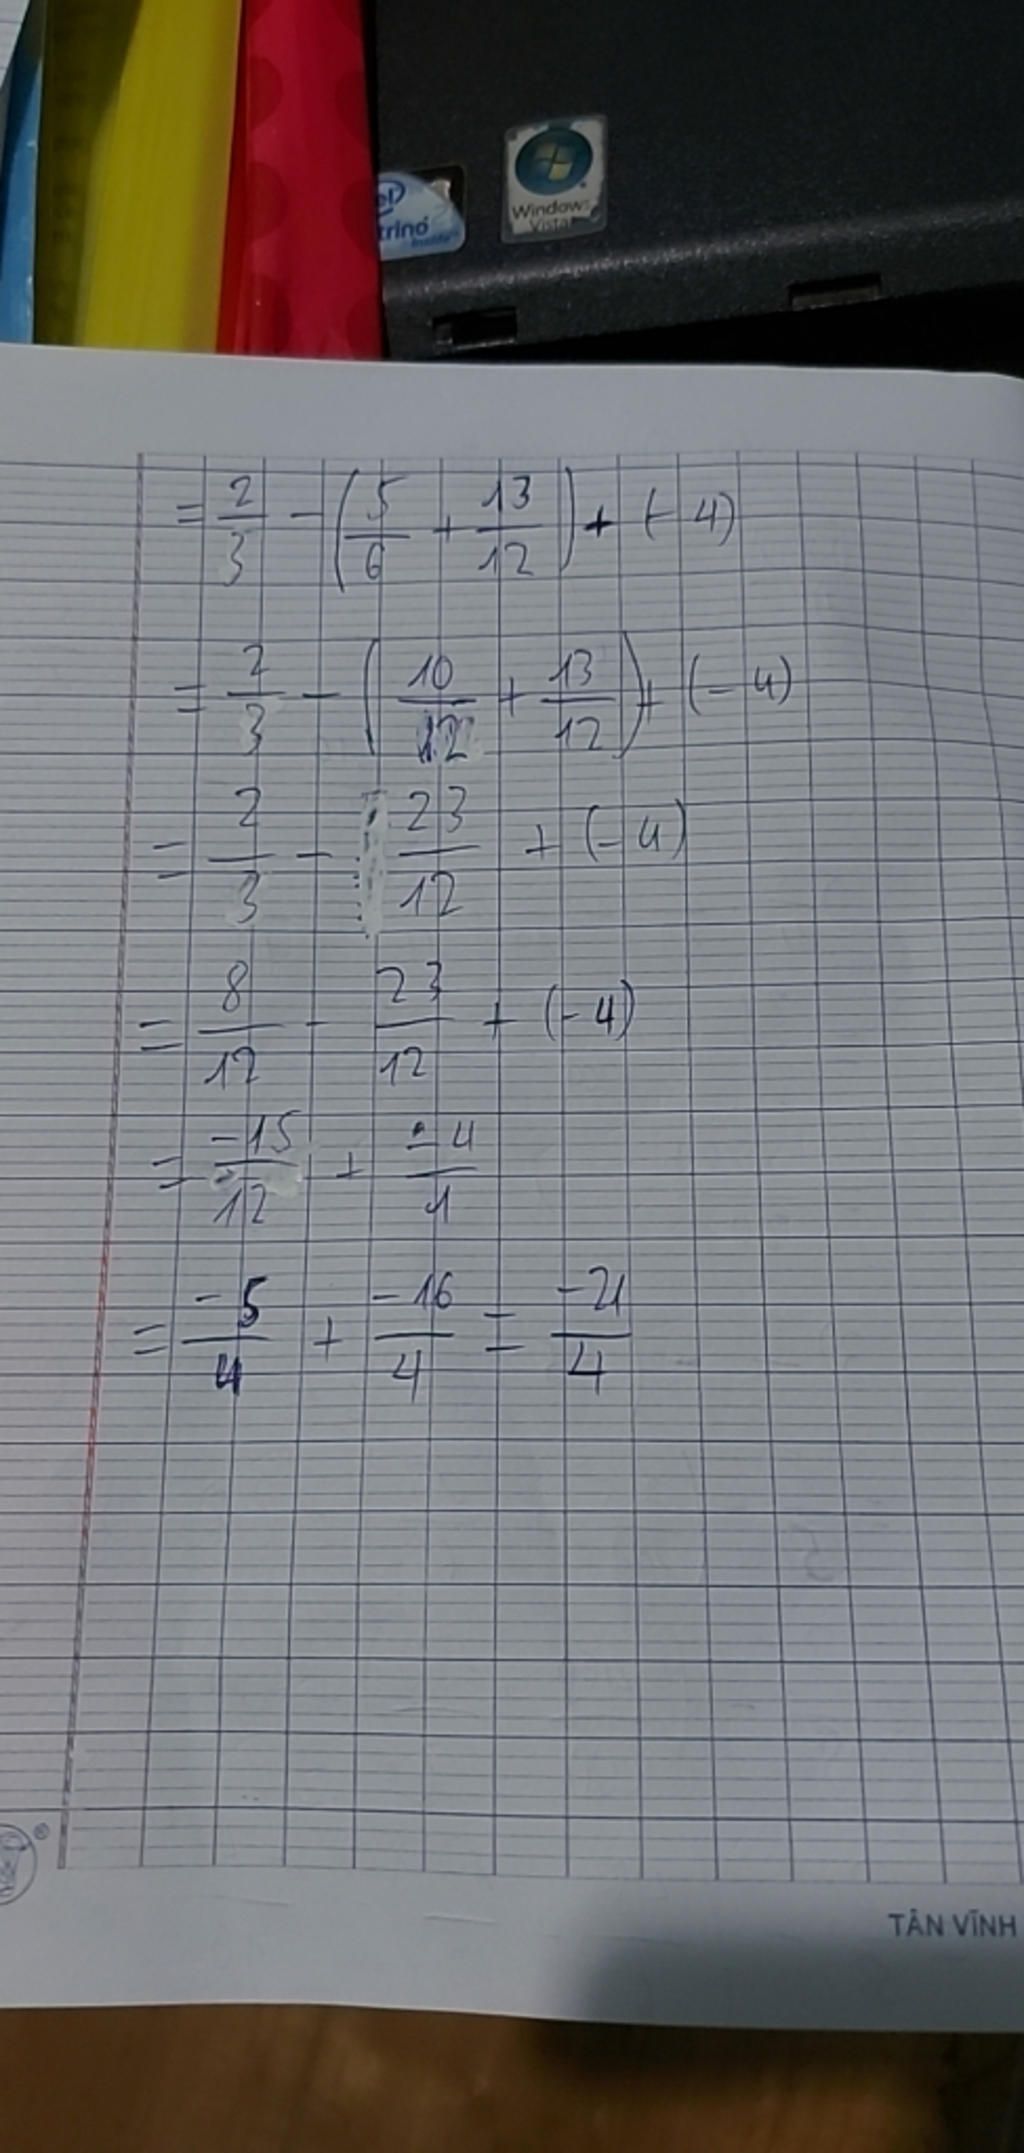 el
trino
inside
Windows
Vista
= 2/3 - (5/6 + 13/12) + (-4)
= 2/3 - (10/12 + 13/12) + (-4)
= 2/3 - 23/12 + (-4)
= 8/12 - 23/12 + (-4)
= -15/12 + -4/1
= -5/4 + -16/4 = -21/4
TÂN VĨNH